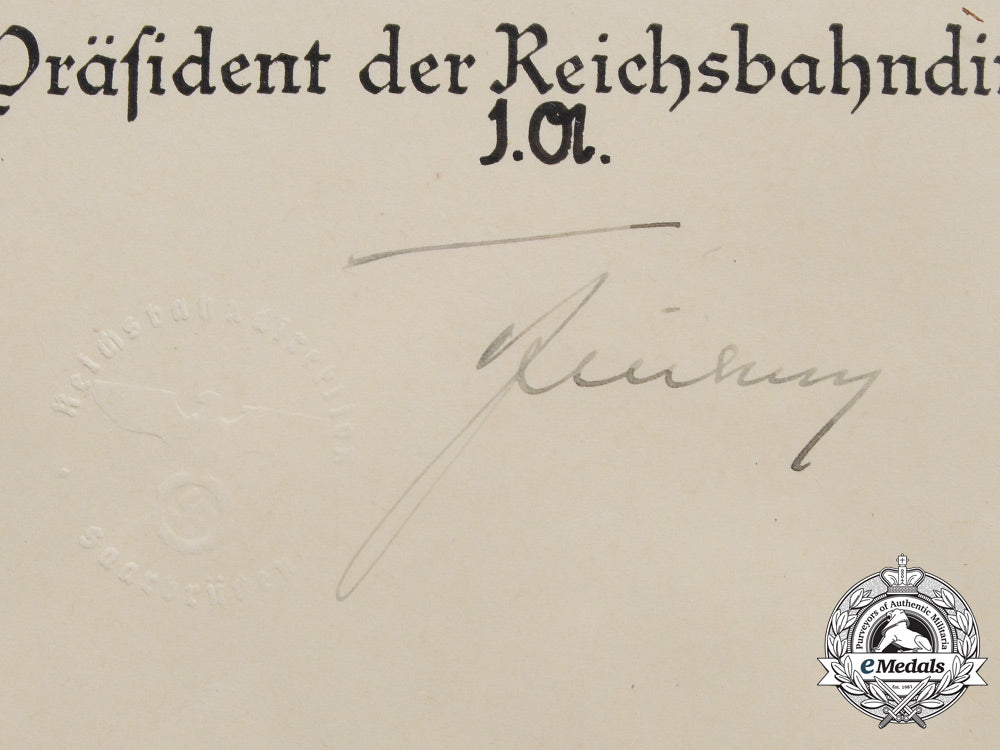 Präſident der Reichsbahndi
I.A.
Reichsbahndirektion
Saarbrücken
Purveyors of Authentic Militaria
eMedals
Est. 1983